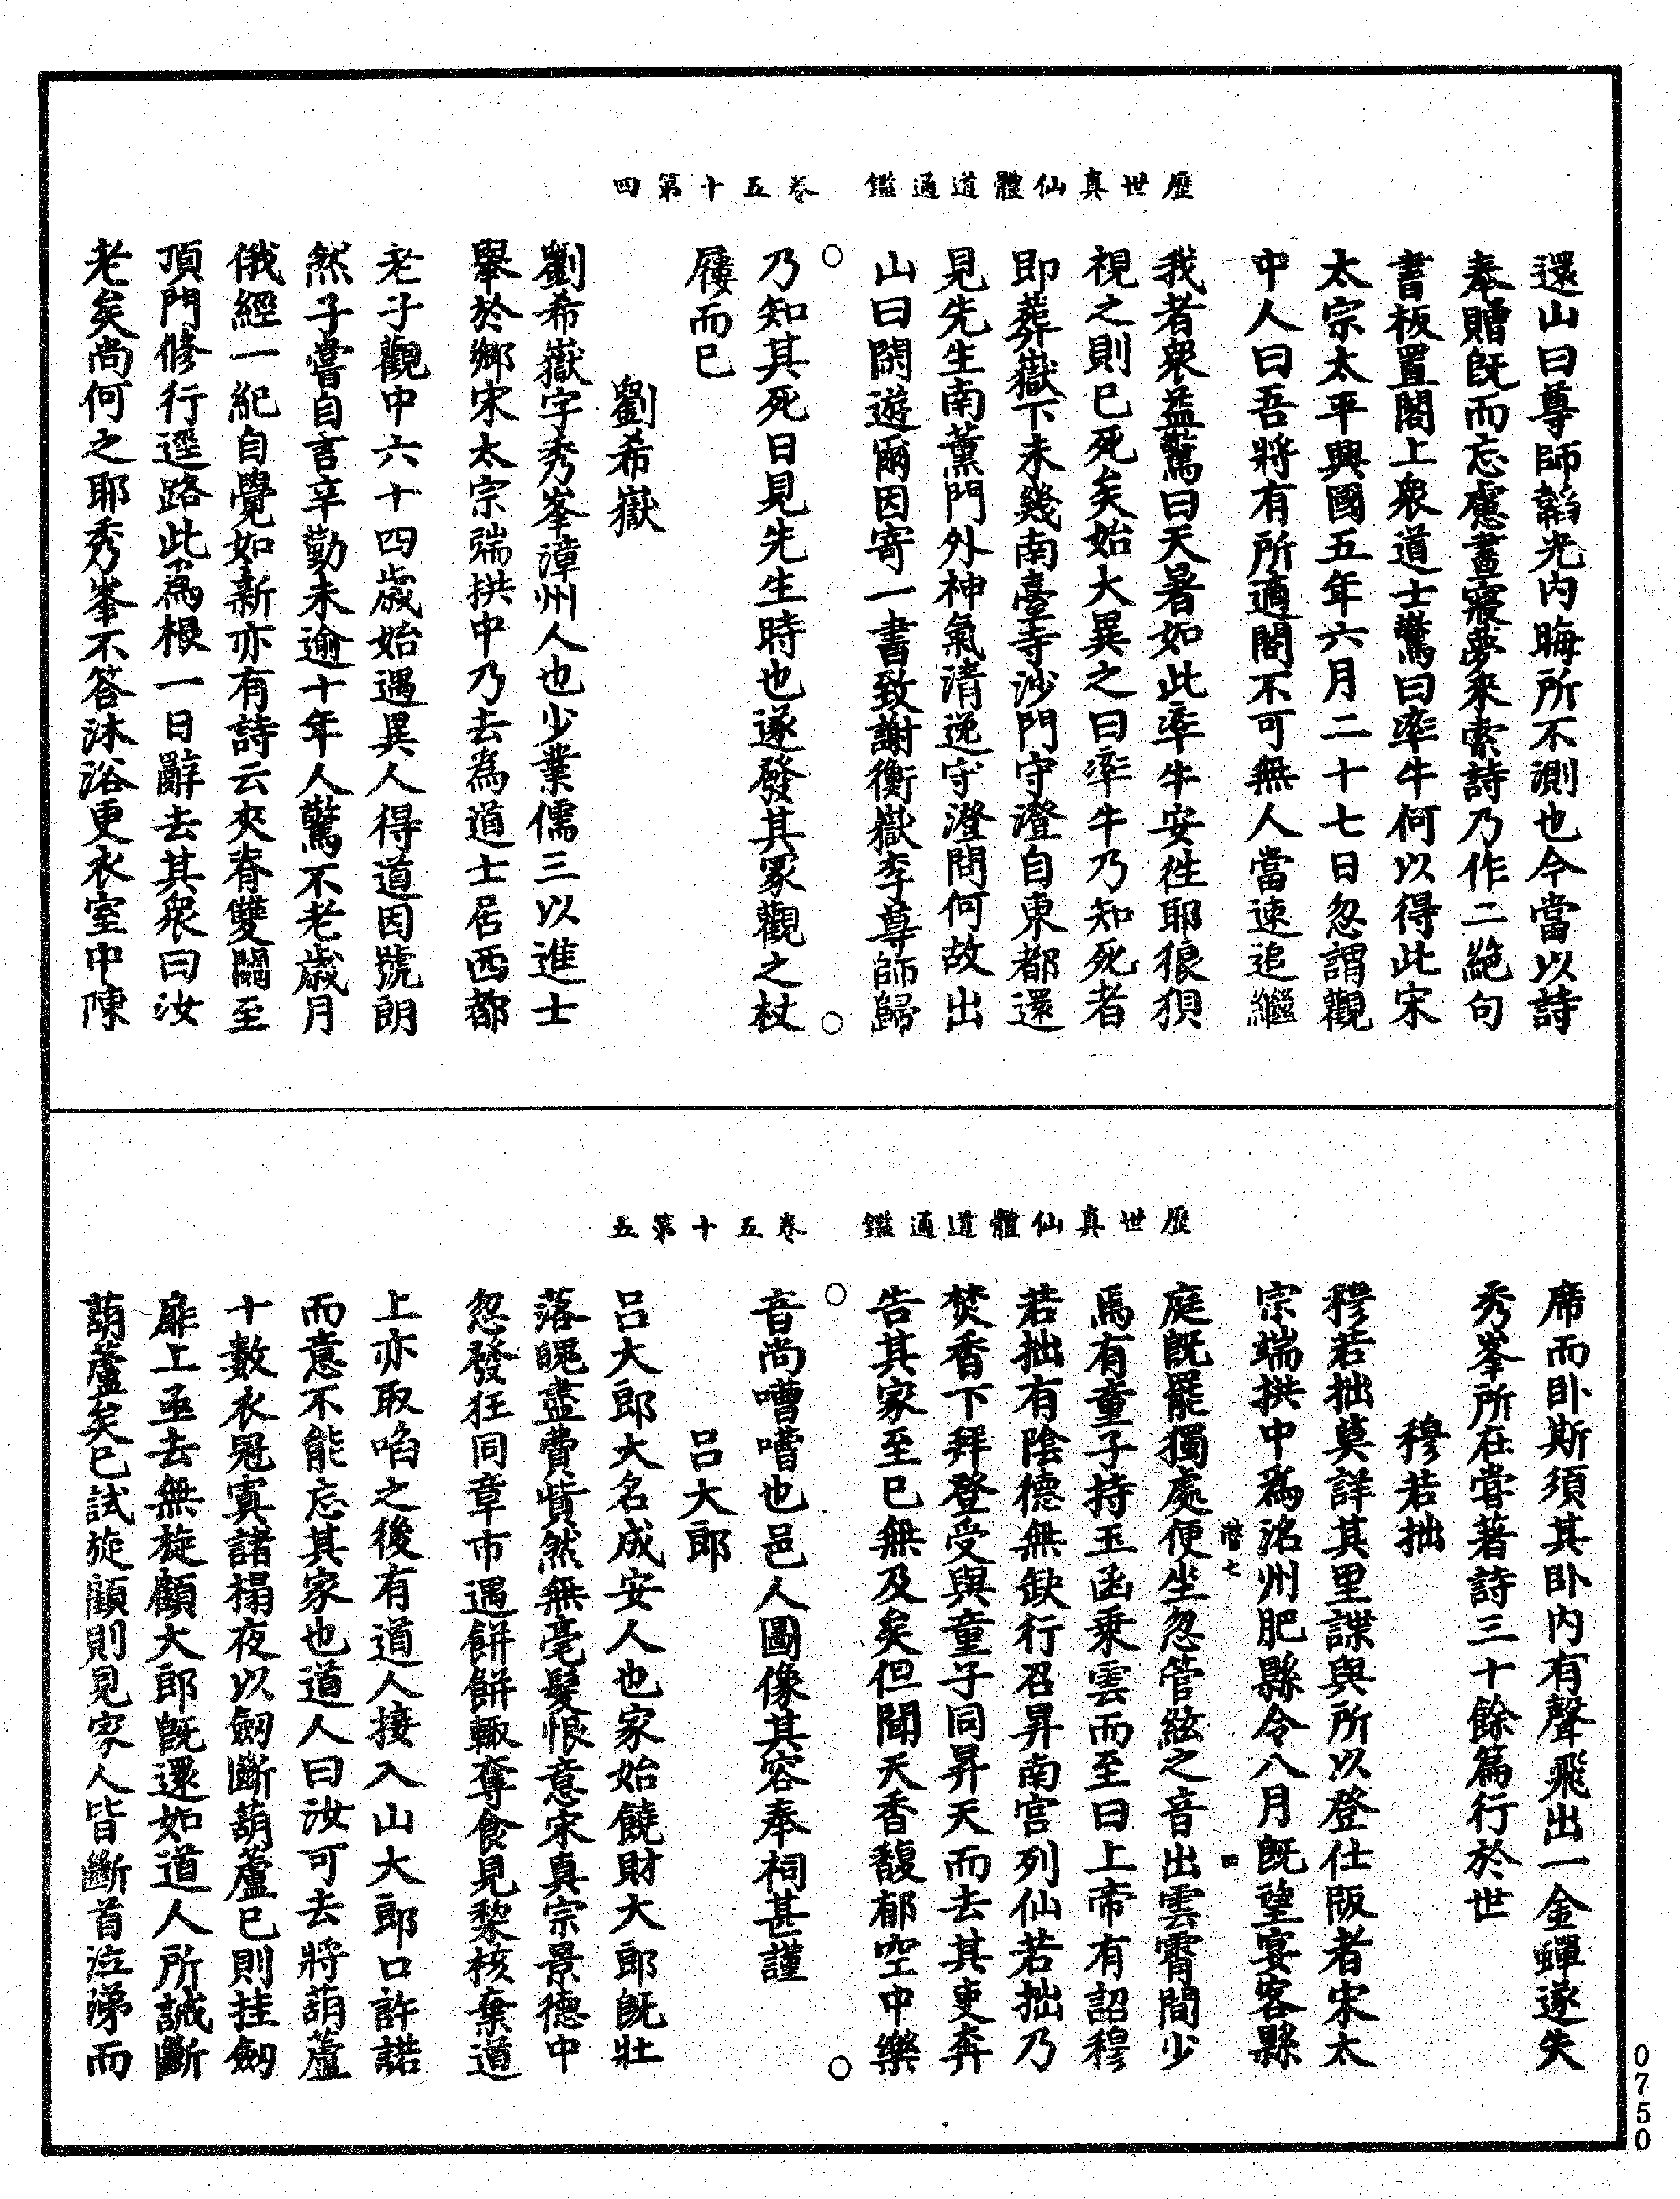 歷世真仙體道通鑑 卷五十第四
還山曰尊師韜光内晦所不測也今當以詩
奉贈既而忘慮晝寢夢來索詩乃作二絶句
書板置閣上衆道士驚曰牽牛何以得此宋
太宗太平興國五年六月二十七日忽謂觀
中人曰吾將有所適閣不可無人當速追繼
我者衆益驚曰天暑如此牽牛安徃耶狼狽
視之則已死矣始大異之曰牽牛乃知死者
即葬嶽下未幾南臺寺沙門守澄自東都還
見先生南薰門外神氣清逸守澄問何故出
山曰閑遊爾因寄一書致謝衡嶽李尊師歸
乃知其死日見先生時也遂發其冢觀之杖
屨而已
劉希嶽
劉希嶽字秀峯漳州人也少業儒三以進士
舉於鄉宋太宗端拱中乃去為道士居西都
老子觀中六十四歲始遇異人得道因號朗
然子嘗自言辛勤未逾十年人驚不老歲月
俄經一紀自覺如新亦有詩云夾脊雙關至
頂門修行逕路此為根一日辭去其衆曰汝
老矣尚何之耶秀峯不答沐浴更衣室中陳
歷世真仙體道通鑑 卷五十第五
席而卧斯須其卧内有聲飛出一金蟬遂失
秀峯所在甞著詩三十餘篇行於世
穆若拙
穆若拙莫詳其里諜與所以登仕版者宋太
宗端拱中為洺州肥縣令八月既望宴客縣
庭既罷獨處便坐忽管絃之音出雲霄間少
焉有童子持玉函乘雲而至曰上帝有詔穆
若拙有陰德無缺行召昇南宫列仙若拙乃
焚香下拜登受與童子同昇天而去其吏奔
告其家至已無及矣但聞天香馥郁空中樂
音尚嘈嘈也邑人圖像其容奉祠甚謹
呂大郎
呂大郎大名成安人也家始饒財大郎既壯
落魄盡費貲然無毫髮恨意宋真宗景德中
忽發狂同章市遇餅餅輒奪食見棃核棄道
上亦取啗之後有道人接入山大郎口許諾
而意不能忘其家也道人曰汝可去將葫蘆
十數衣冠寘諸榻夜以劒斷葫蘆已則挂劒
扉上亟去無旋顧大郎既還如道人所誡斷
葫蘆矣已試旋顧則見家人皆斷首泣涕而
0750